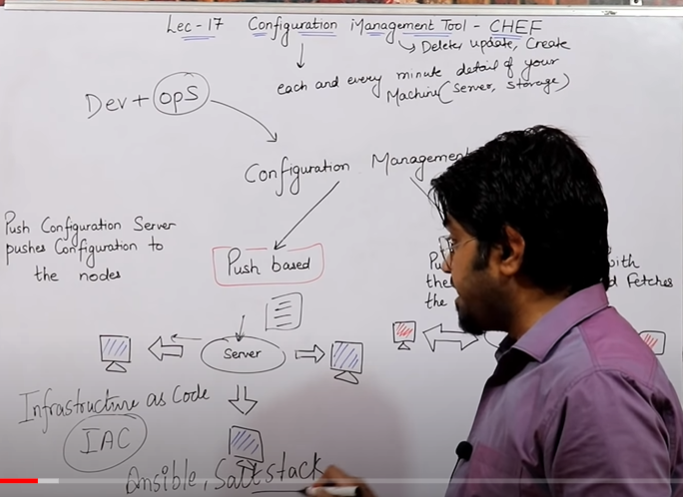 Lec-17 Configuration Management Tool - CHEF
Delete, update, Create
each and every minute detail of your
Machine (server, storage)
Dev + ops
Configuration Management
Push Configuration Server
pushes Configuration to
the nodes
Push based
with
the Fetches
the
Server
Infrastructure as Code
IAC
Ansible, Saltstack